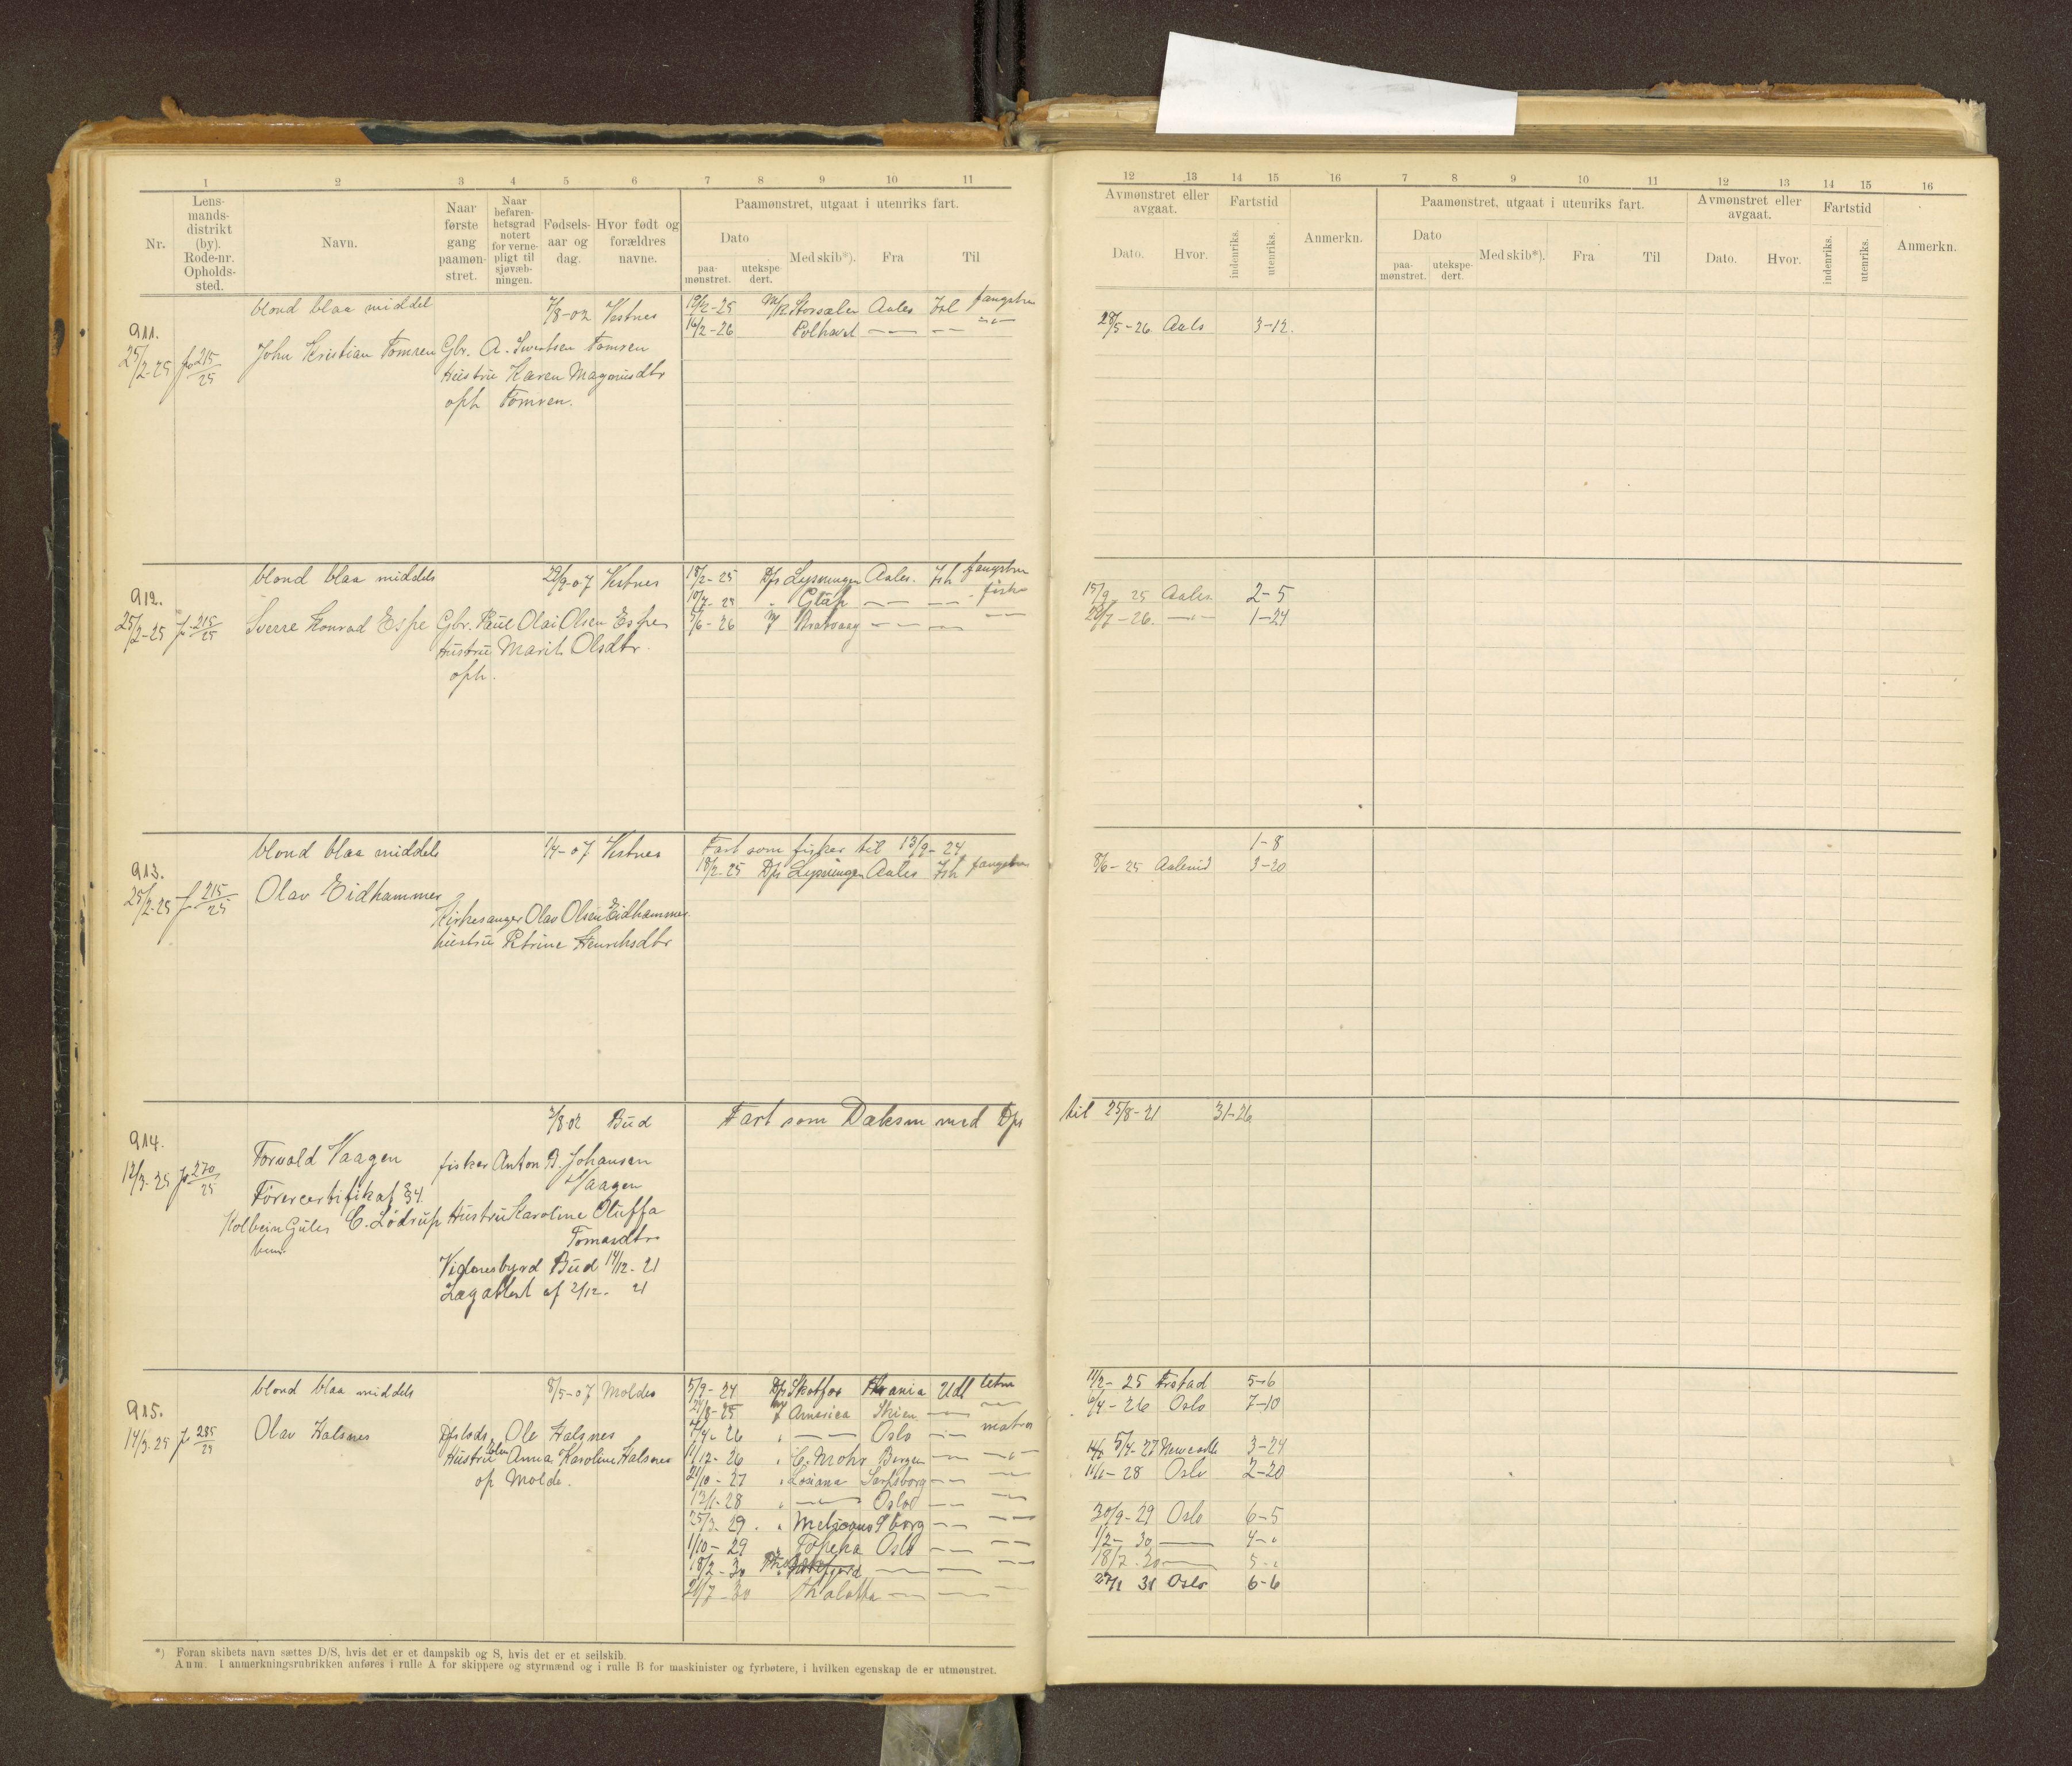 1 2 3 4 5 6 7 8 9 10 11
Nr.
Lens-
mands-
distrikt
(by).
Rode-nr.
Opholds-
sted.
Navn.
Naar
første
gang
paamøn-
stret.
Naar
befaren-
hetsgrad
notert
for verne-
pligt til
sjøvæb-
ningen.
Fødsels-
aar og
dag.
Hvor født og
forældres
navne.
Paamønstret, utgaat i utenriks fart.
Dato
paa-
mønstret.
utekspe-
dert.
Med skib*).
Fra
Til
911.
25/2-25 215/25
blond blaa middel 7/8-02 Vestnes
John Kristian Tomren Gbr. A. Tomren
Hustru Karen Magnusdtr
oph Tomren.
19/2-25 Aales fangstm
16/2-26 Polhavet
912.
25/2-25 215/25
blond blaa middels 29/9-07 Vestnes
Sverre Konrad Espe Gbr. Paul Olai Olsen Espe
Hustru Marit Olsdtr.
oph.
18/2-25 D/s Lysningen Aales. Ish fangstm
Glåp fisker
5/6-26
913.
25/2-25 215/25
blond blaa middels 1/4-07 Vestnes
Olav Eidhammer
Kirkesanger Olav Olsen Eidhammer
hustru Petrine Henriksdtr
Fart som fisker til 13/9-24
18/2-25 D/s Lysningen Aales Ish fangstm
914.
12/3-25 270/25
2/8 02 Bud
Torvald Vaagen fisker Anton B. Johansen
Vaagen
Førercertifikat 34.
C. Lødrup Hustru Karoline Oluffa
Tomasdtr
Bud 14/12-21
Lægattest af 2/12-21
Fart som Daksm med D/s
915.
14/3-25 285/25
blond blaa middels 8/5-07 Molde
Olav Halsnes D/s lods Ole Halsnes
Hustru Anna Karoline Halsnes
op Molde.
5/9-24 D/s Skotfos Krania Udl letm
America Skien
Oslo matros
11/12-26 C. Mohr Bergen
21/10-27 Sarpsborg
13/1-28 Oslo
25/3-29. S borg
1/10-29 Topeka Oslo
18/2-30
21/7-30 Thalatta
*) Foran skibets navn sættes D/S, hvis det er et dampskib og S, hvis det er et seilskib.
Anm. I anmerkningsrubrikken anføres i rulle A for skippere og styrmænd og i rulle B for maskinister og fyrbøtere, i hvilken egenskap de er utmønstret.
12 13 14 15 16 7 8 9 10 11 12 13 14 15 16
Avmønstret eller
avgaat.
Dato.
Hvor.
Fartstid
indenriks.
utenriks.
Anmerkn.
Paamønstret, utgaat i utenriks fart.
Dato
paa-
mønstret.
utekspe-
dert.
Med skib*).
Fra
Til
Avmønstret eller
avgaat.
Dato.
Hvor.
Fartstid
indenriks.
utenriks.
Anmerkn.
28/5-26 Aals 3-12.
15/9 25 Aales. 2-5
1-24
1-8
8/6-25 Aalesund 3-20
til 25/8-21 31-26
11/2-25 Frstad 5-6
6/4-26 Oslo 7-10
5/4-27 Newcastle 3-24
11/1-28 Oslo 2-20
30/9-29 Oslo 6-5
1/2-30 4-
18/7 30 5-
31 Oslo 6-6